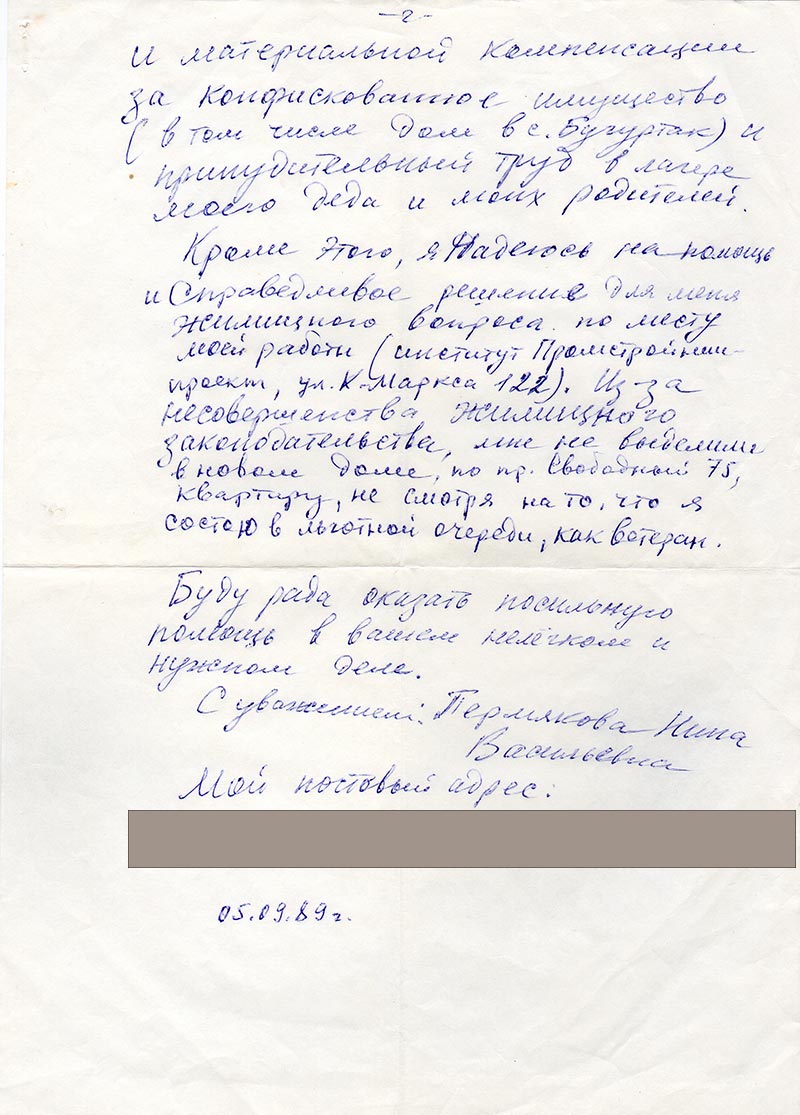 -2-
и материальной компенсации
за конфискованное имущество
(в том числе дом в с. Бугуртак) и
принудительный труд в лагере
моего деда и моих родителей.
Кроме этого, я надеюсь на помощь
и справедливое решение для меня
жилищного вопроса по месту
моей работы (институт Промстройнии-
проект, ул. К-Маркса 122). Из-за
несовершенства жилищного
законодательства, мне не выделили
в новом доме, по пр. Свободный 75,
квартиру, не смотря на то, что я
состою в льготной очереди, как ветеран.
Буду рада оказать посильную
помощь в вашем нелёгком и
нужном деле.
С уважением: Пермякова Нина
Васильевна
Мой почтовый адрес:
05.09.89г.